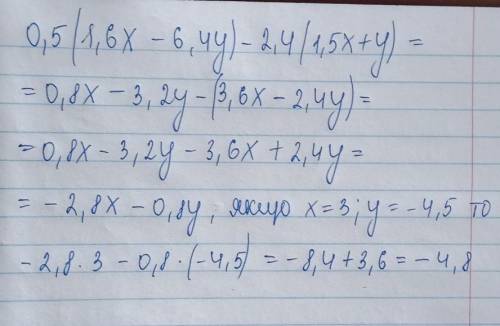 0,5(1,6x - 6,4y) - 2,4(1,5x+y) =
= 0,8x - 3,2y - (3,6x - 2,4y) =
= 0,8x - 3,2y - 3,6x + 2,4y =
= - 2,8x - 0,8y, якщо x=3; y= -4,5 то
- 2,8 · 3 - 0,8 · (-4,5) = -8,4 + 3,6 = -4,8